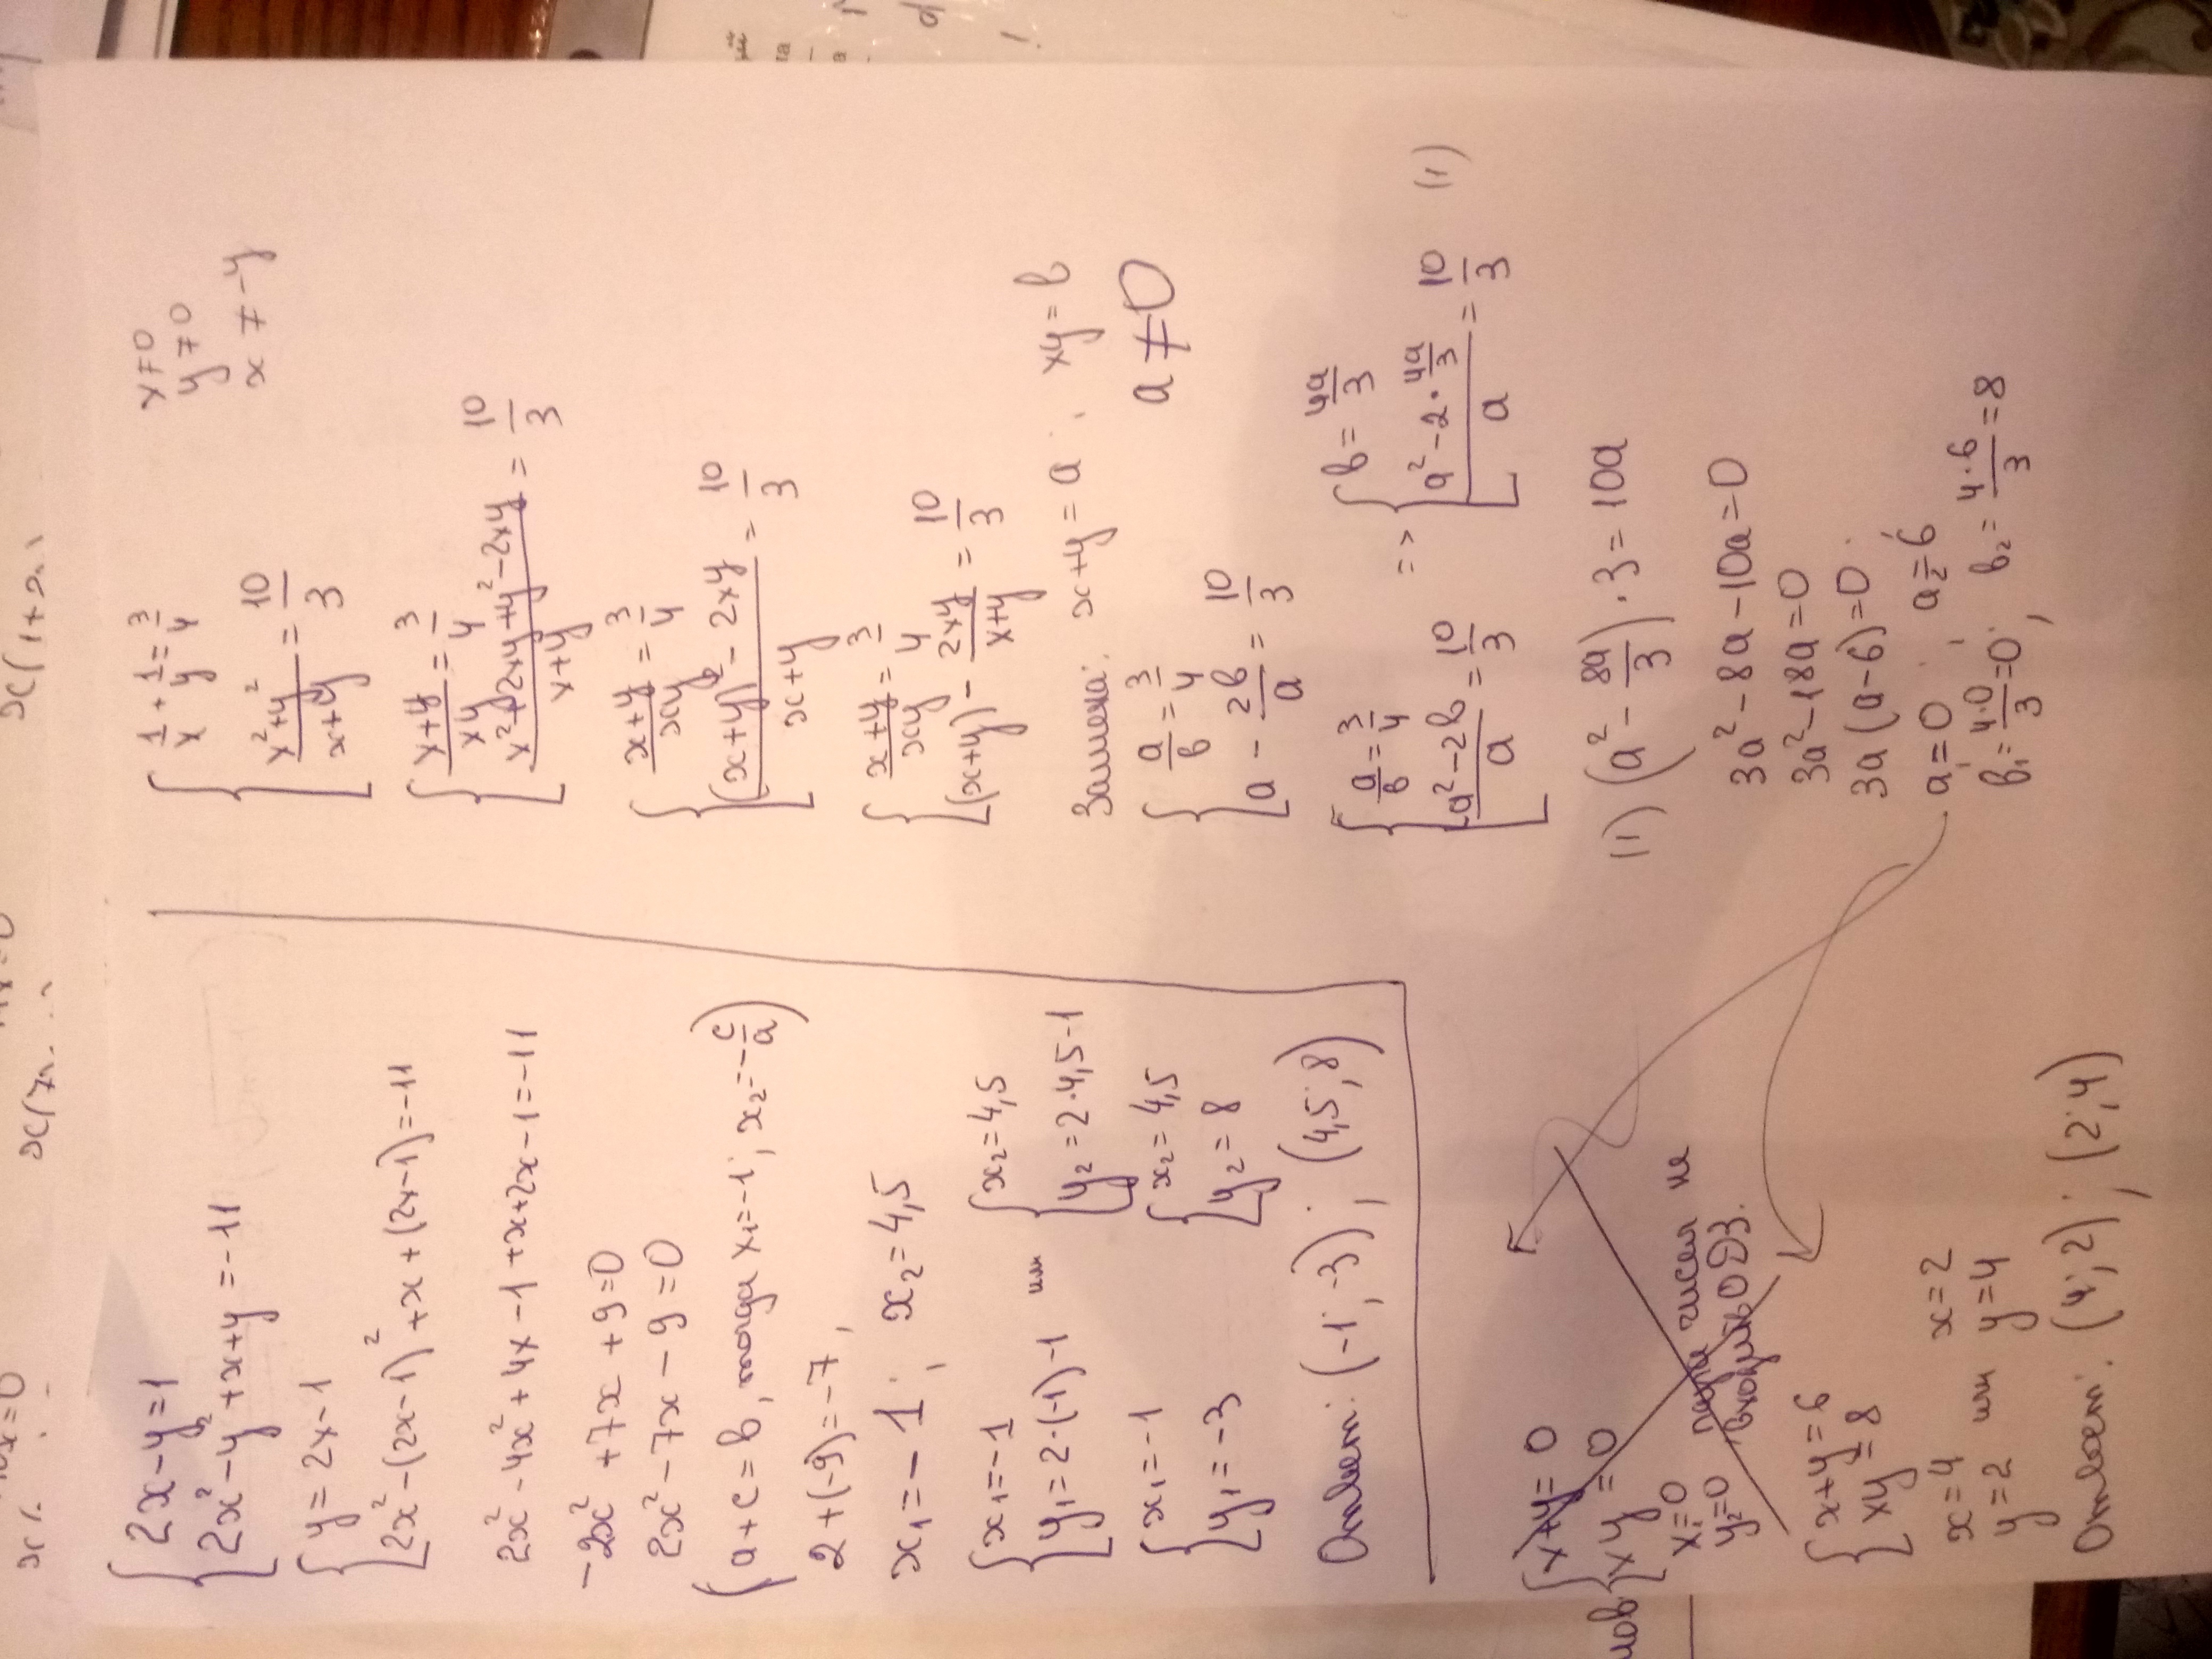 2x-y=1
2x²-y²+x+y=-11
y=2x-1
2x²-(2x-1)²+x+(2x-1)=-11
2x²-4x²+4x-1+x+2x-1=-11
-2x²+7x+9=0
2x²-7x-9=0
(a+c=b, тогда x₁=-1; x₂=-c/a)
2+(-9)=-7,
x₁=-1; x₂=4,5
x₁=-1
y₁=2·(-1)-1
или
x₂=4,5
y₂=2·4,5-1
x₁=-1
y₁=-3
x₂=4,5
y₂=8
Ответ: (-1;-3); (4,5;8)
1/x+1/y=3/4
(x²+y²)/(x+y)=10/3
x≠0
y≠0
x≠-y
(x+y)/(xy)=3/4
(x²+2xy+y²-2xy)/(x+y)=10/3
(x+y)/(xy)=3/4
((x+y)²-2xy)/(x+y)=10/3
(x+y)/(xy)=3/4
(x+y)-2xy/(x+y)=10/3
Замена: x+y=a; xy=b
a≠0
a/b=3/4
a-2b/a=10/3
a/b=3/4
(a²-2b)/a=10/3
=>
b=4a/3
(a²-2·4a/3)/a=10/3 (1)
(1) (a²-8a/3)·3=10a
3a²-8a-10a=0
3a²-18a=0
3a(a-6)=0
a₁=0; a₂=6
b₁=4·0/3=0; b₂=4·6/3=8
x+y=0
xy=0
x=0
y=0
пара чисел не
входит в ОДЗ.
x+y=6
xy=8
x=4
y=2
или
x=2
y=4
Ответ: (4;2); (2;4)